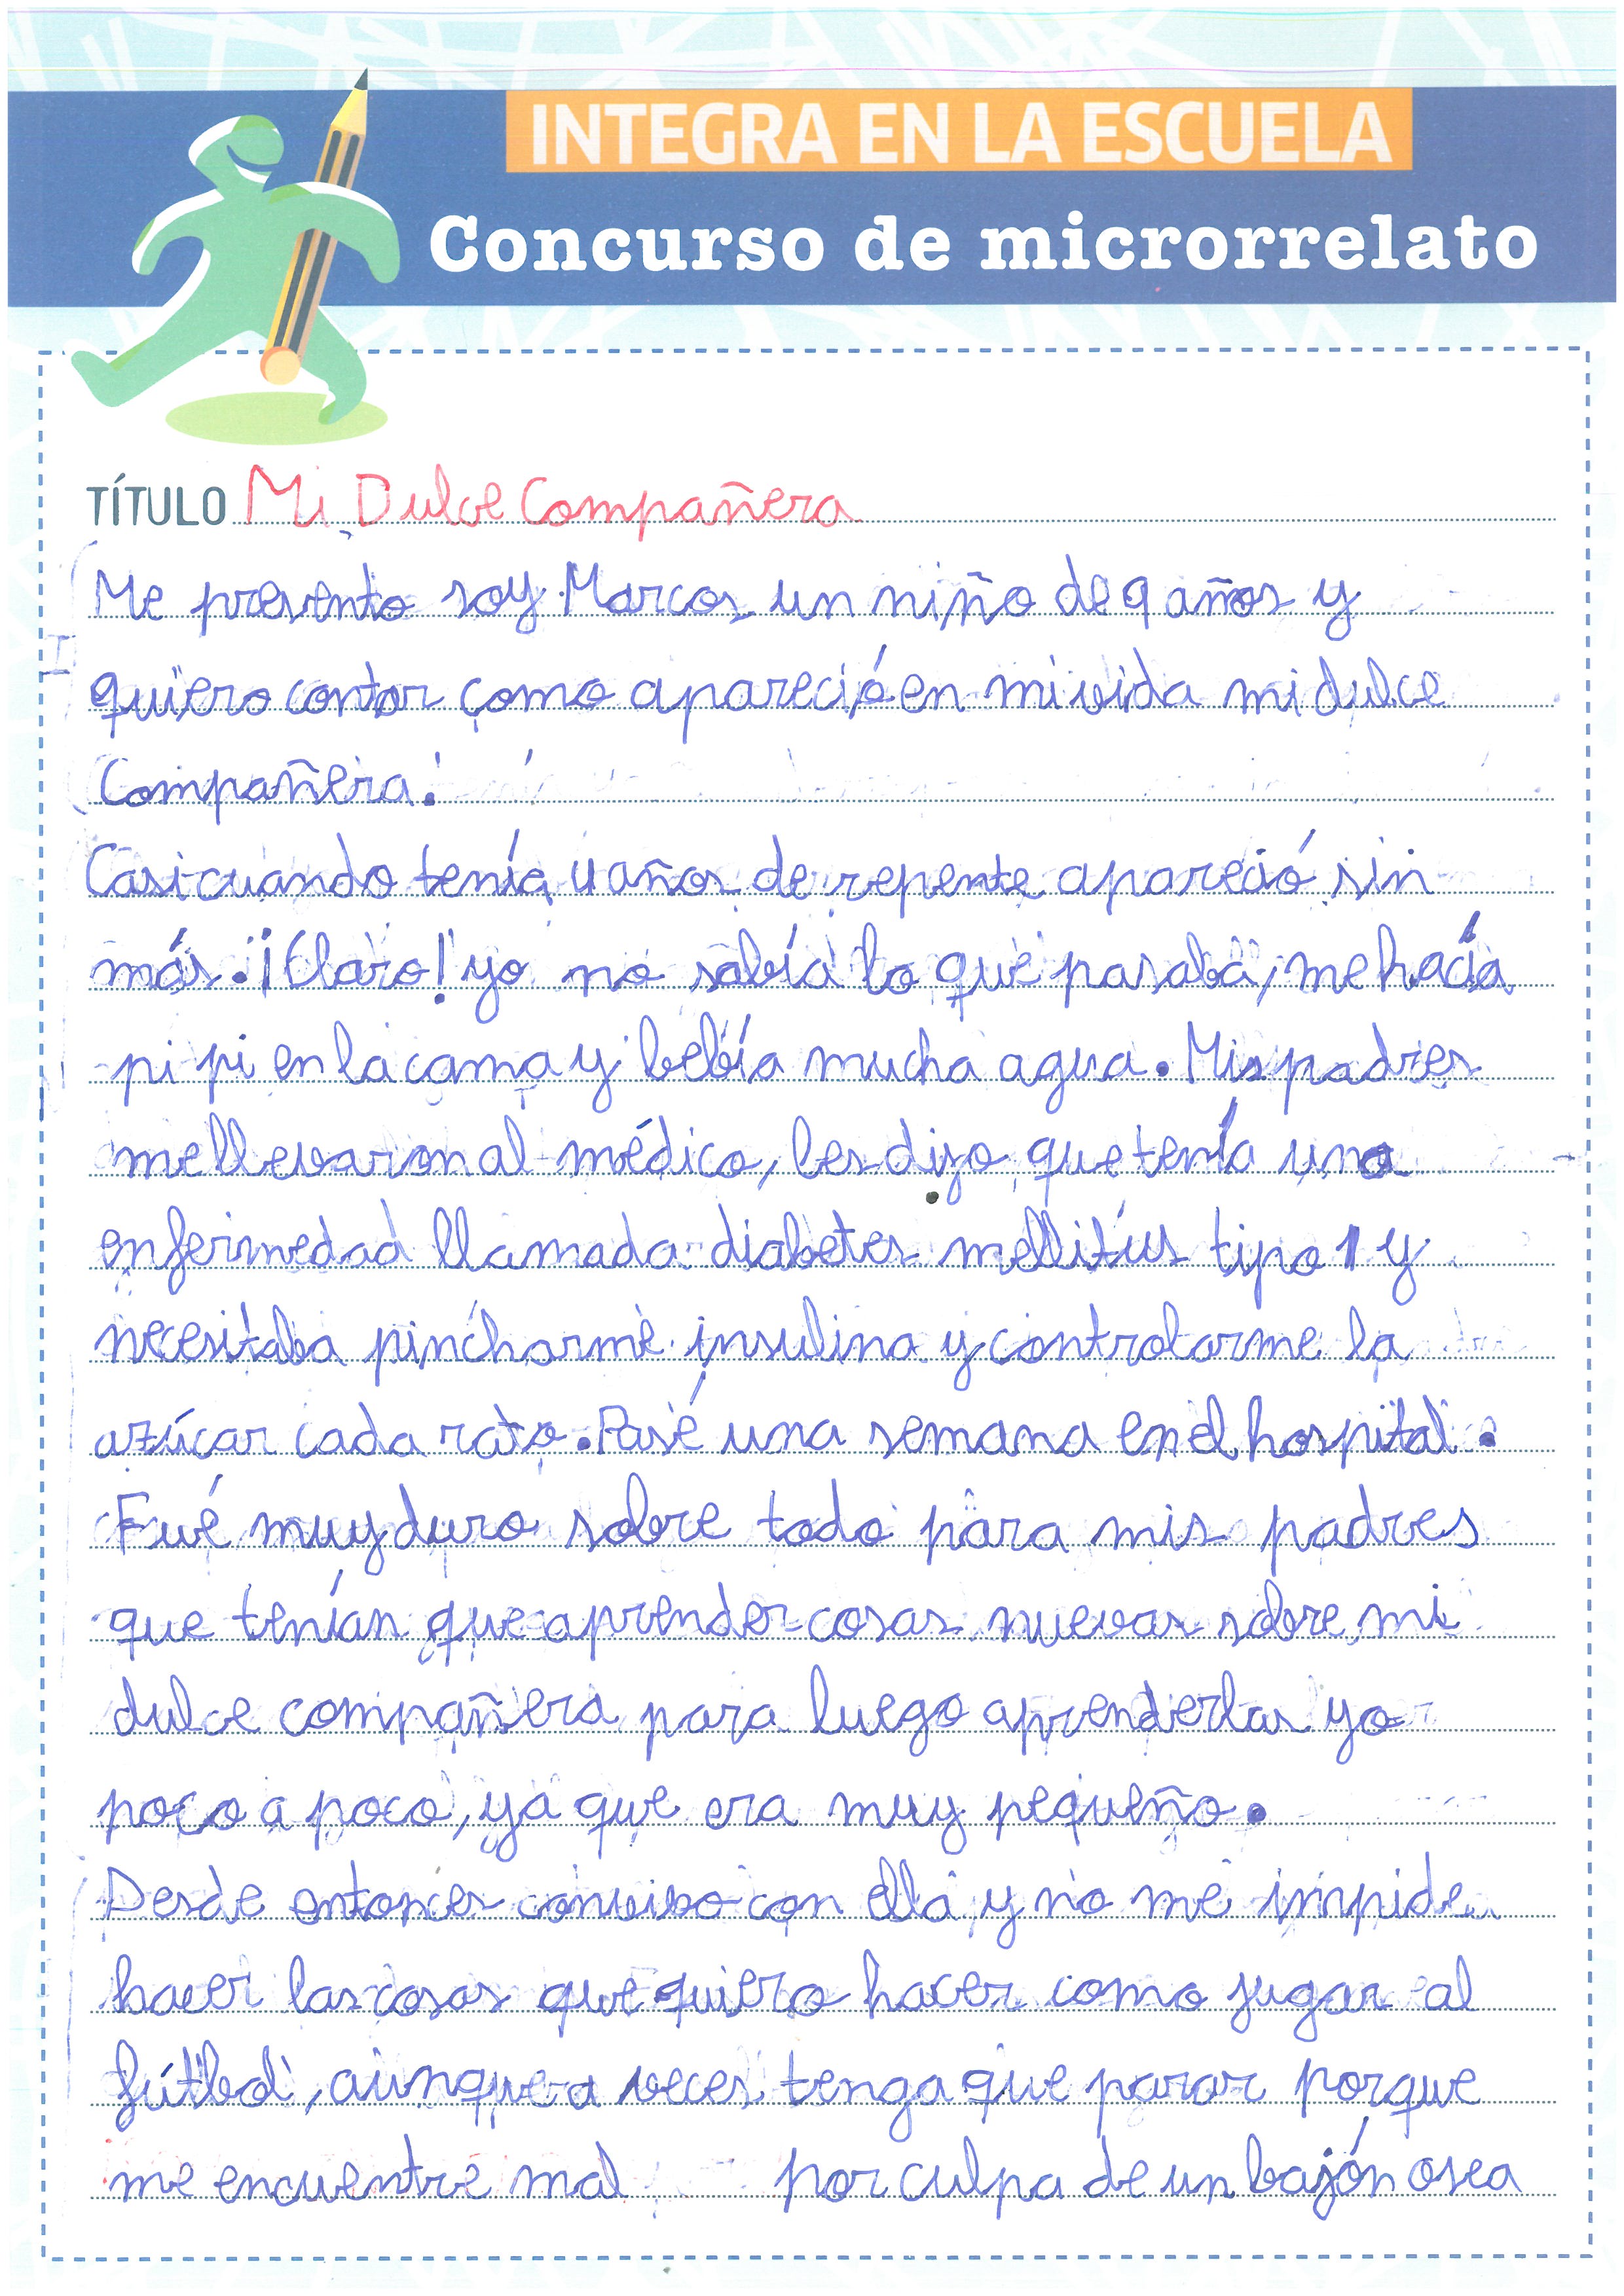 INTEGRA EN LA ESCUELA
Concurso de microrrelato
TÍTULO Mi Dulce Compañera
Me presento soy Marcos un niño de 9 años y
quiero contar como apareció en mi vida mi dulce
Compañera.
Casi cuando tenía 4 años de repente apareció sin
más. ¡Claro! yo no sabía lo que pasaba, me hacía
pi pi en la cama y bebía mucha agua. Mis padres
me llevaron al médico, les dijo que tenía una
enfermedad llamada diabetes mellitus tipo 1 y
necesitaba pincharme insulina y controlarme la
azúcar cada rato. Pasé una semana en el hospital.
Fué muy duro sobre todo para mis padres
que tenían que aprender cosas nuevas sobre mi
dulce compañera para luego aprenderlas yo
poco a poco, ya que era muy pequeño.
Desde entonces convivo con ella y no me impide
hacer las cosas que quiero hacer como jugar al
fútbol, aunque a veces tenga que parar porque
me encuentre mal por culpa de un bajón osea